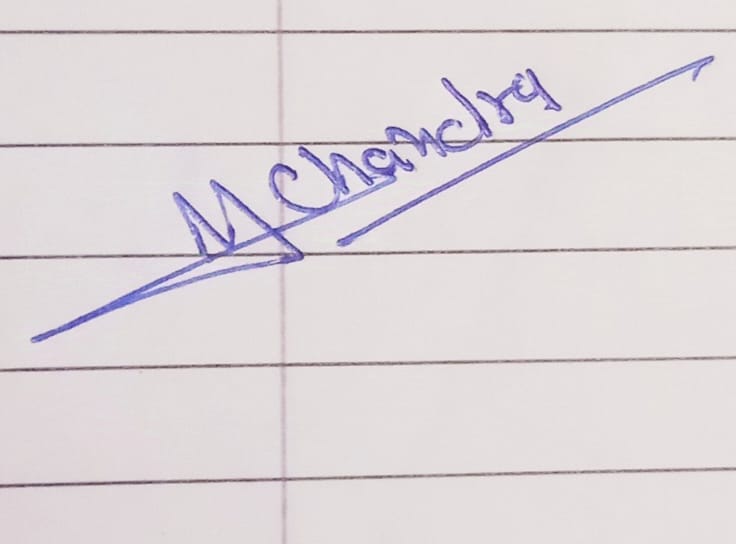 M Chandra